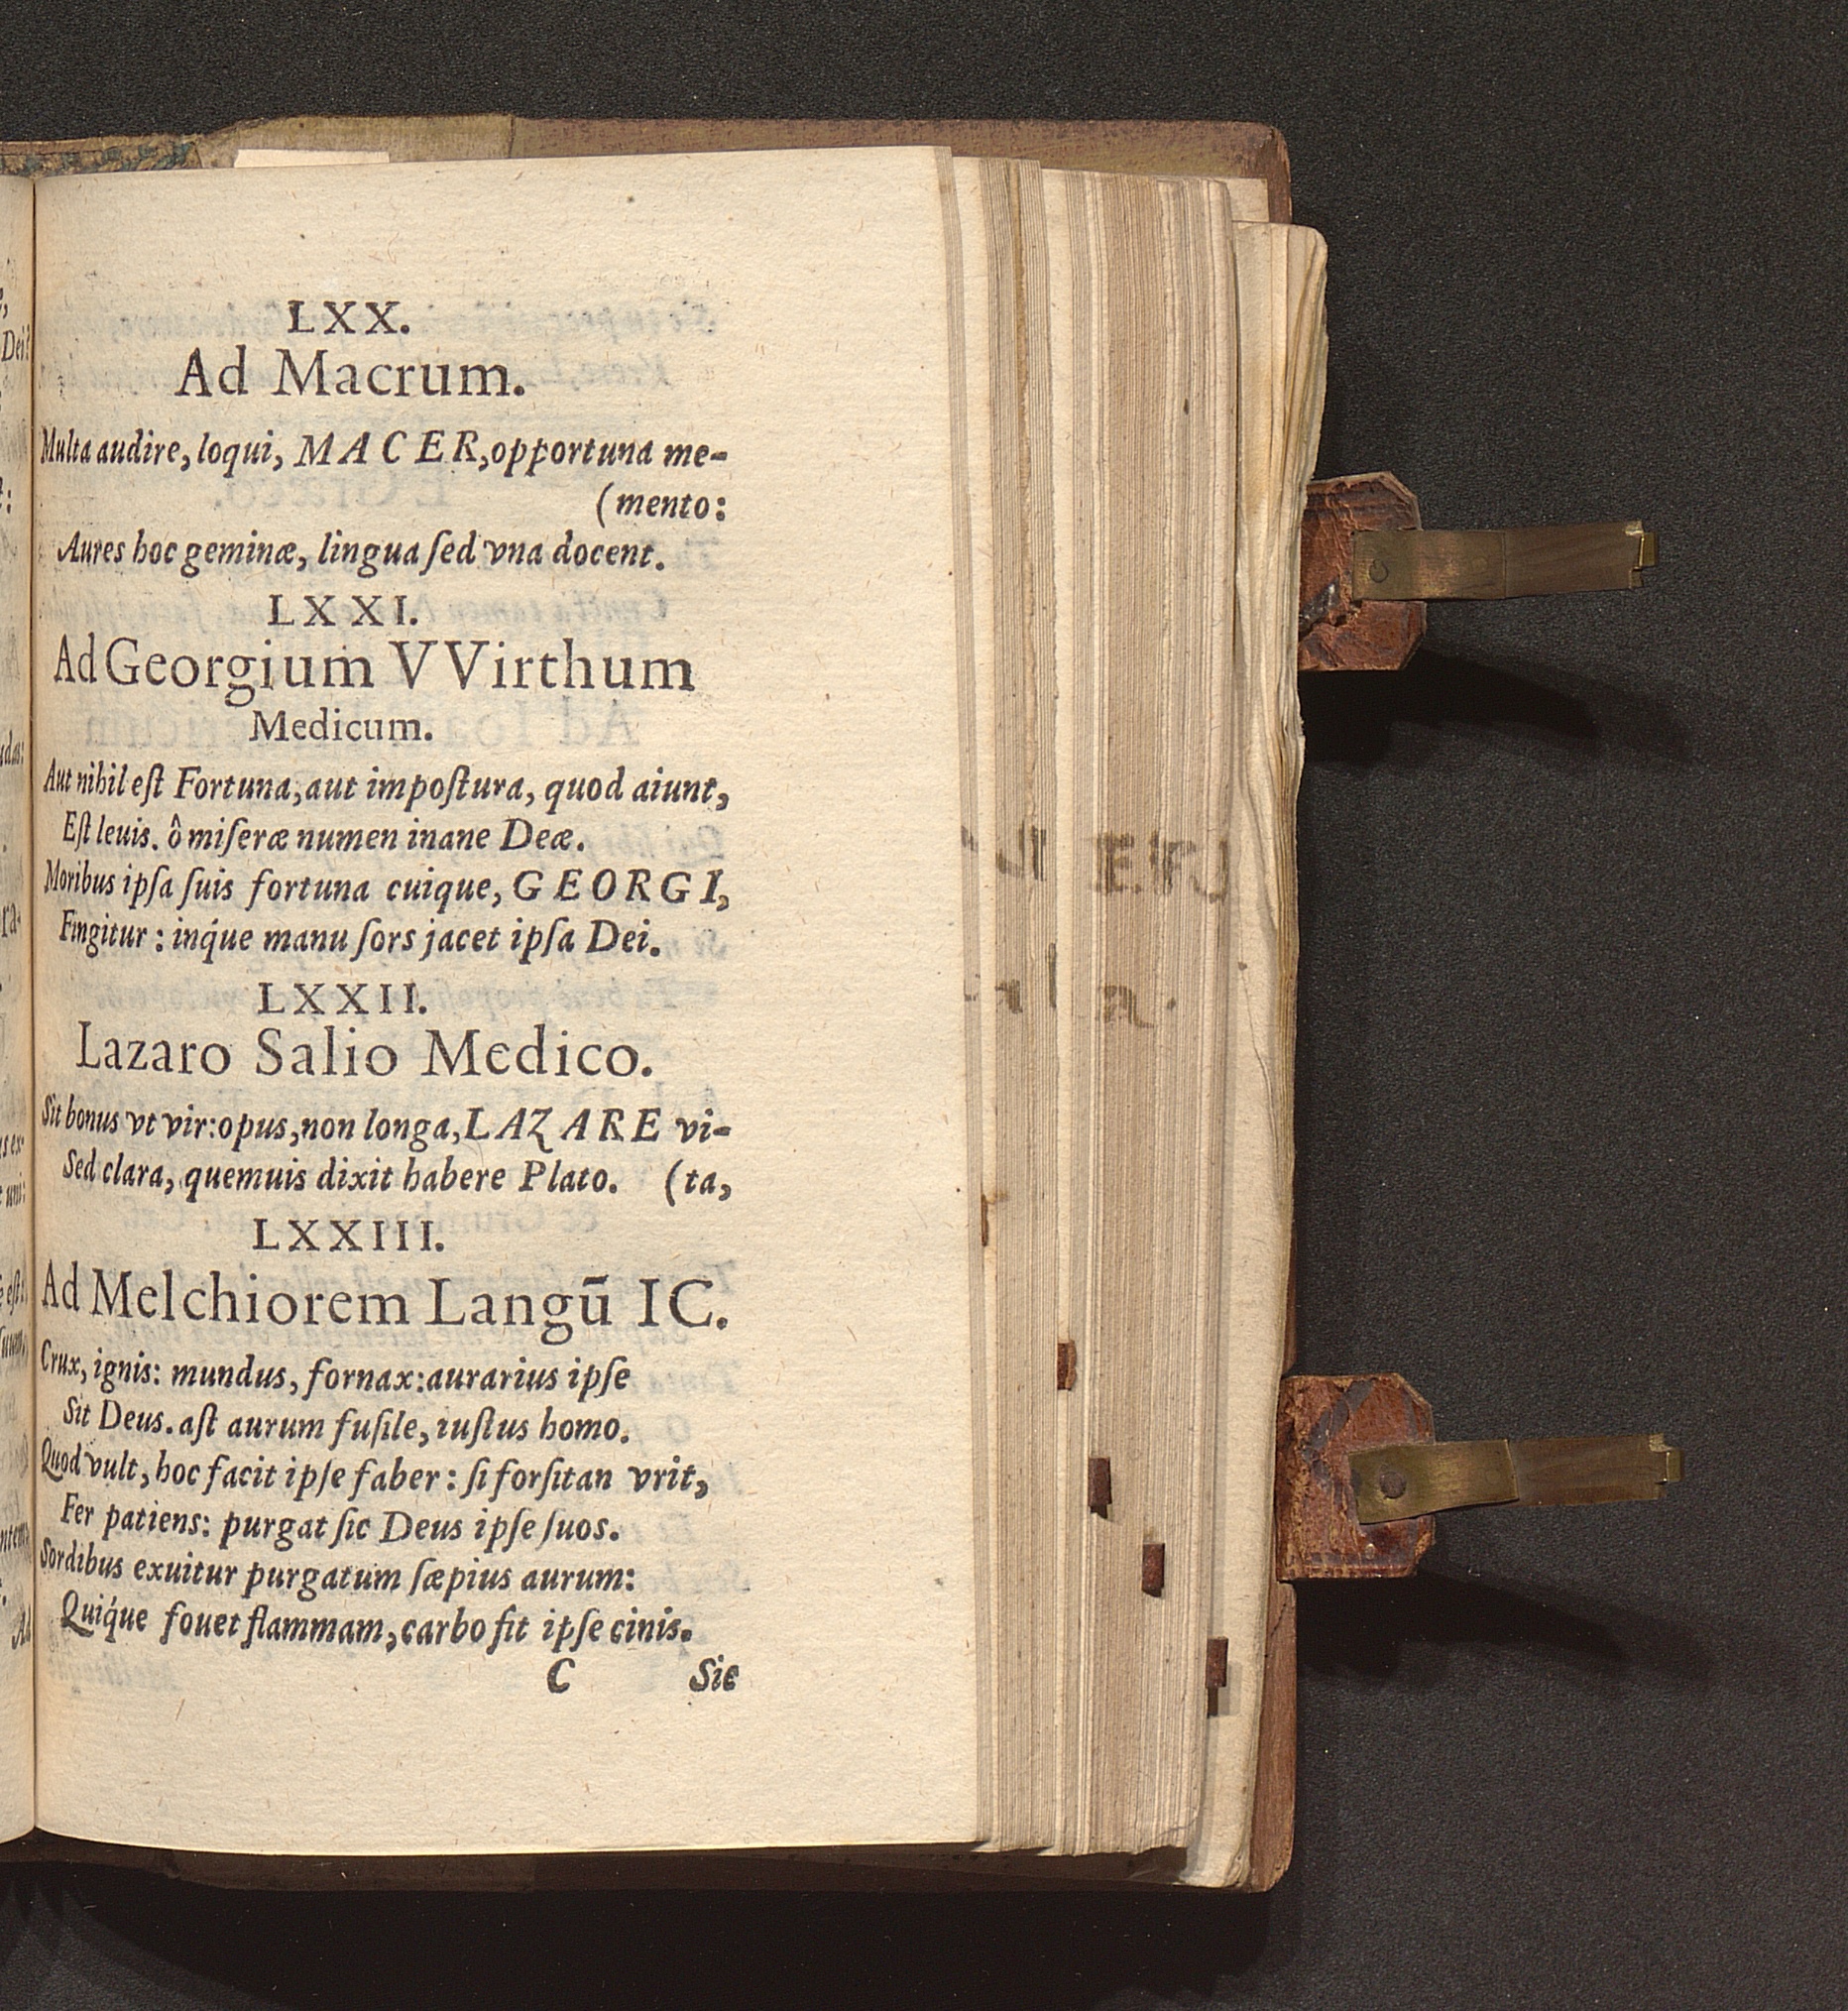 LXX.
Ad Macrum.
Multa audire, loqui, MACER, opportuna me-
(mento:
Aures hoc geminæ, lingua ſed vna docent.
LXXI.
Ad Georgium VVirthum
Medicum.
Aut nihil eſt Fortuna, aut impoſtura, quod aiunt,
Eſt leuis. ô miſeræ numen inane Deæ.
Moribus ipſa ſuis fortuna cuique, GEORGI,
Fingitur: inq́ue manu ſors jacet ipſa Dei.
LXXII.
Lazaro Salio Medico.
Sit bonus vt vir: opus, non longa, LAZARE vi-
Sed clara, quemuis dixit habere Plato. (ta,
LXXIII.
Ad Melchiorem Langū IC.
Crux, ignis: mundus, fornax: aurarius ipſe
Sit Deus. aſt aurum fuſile, iuſtus homo.
Quod vult, hoc facit ipſe faber: ſi forſitan vrit,
Fer patiens: purgat ſic Deus ipſe ſuos.
Sordibus exuitur purgatum ſæpius aurum:
Quiq́ue fouet flammam, carbo fit ipſe cinis.
C Sic